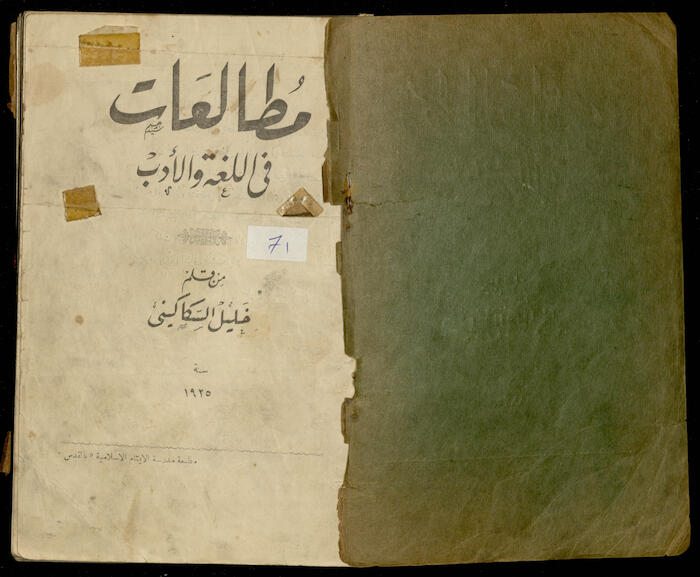 مُطالعَات
في اللغة والأدب
71
من قلم
خَليْل السَّكاكيني
سنة
١٩٢٥
مطبعة مدرسة الايتام الاسلامية «بالقدس»